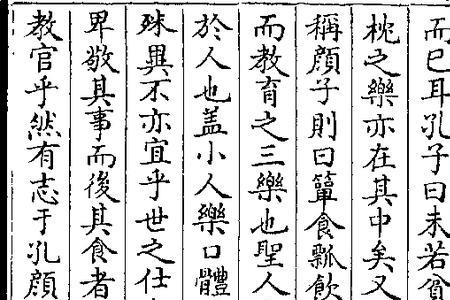 而已耳孔子曰未若貧
枕之樂亦在其中矣又
稱顔子則曰簞食瓢飲
而教育之三樂也聖人
於人也盖小人樂口體
殊異不亦宜乎世之仕
卑敬其事而後其食者
教官乎然有志于孔顔